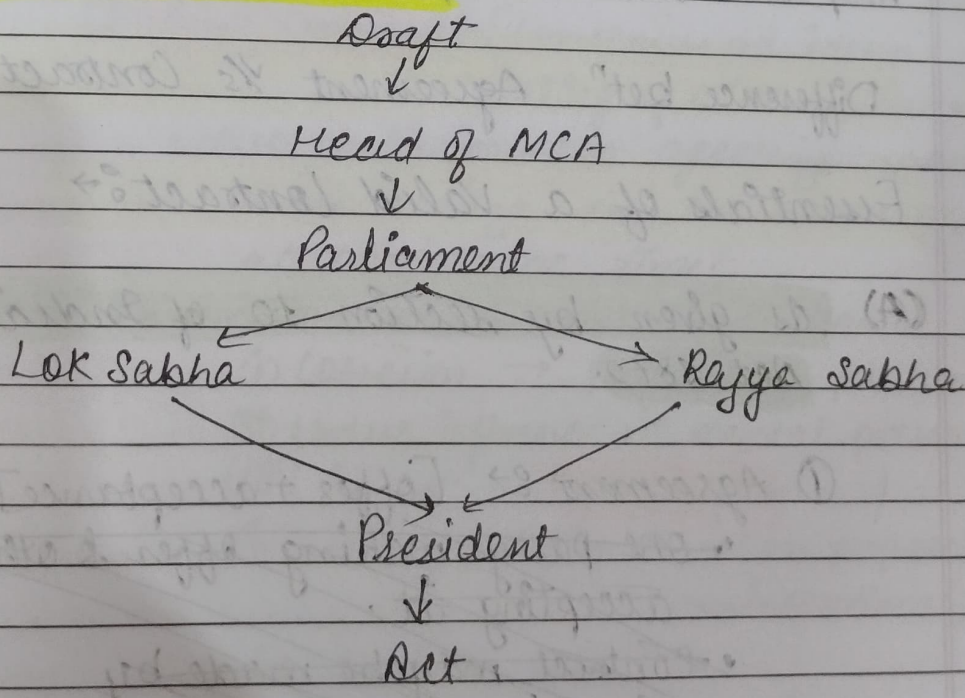 Draft
Head of MCA
Parliament
Lok Sabha Rajya Sabha
President
Act